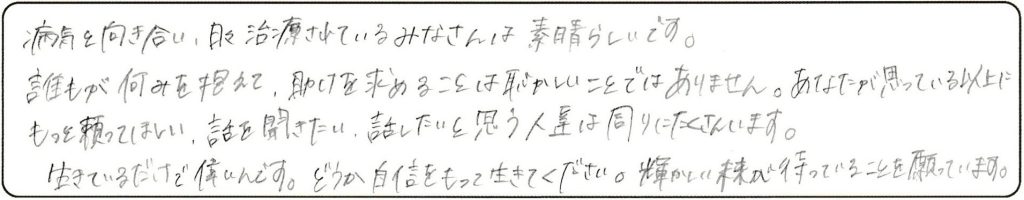 病気と向き合い、日々治療されているみなさんは素晴らしいです。
誰もが何みを抱えて、助けを求めることは恥かしいことではありません。あなたが思っている以上に
もっと頼ってほしい、話を聞きたい、話したいと思う人達は周りにたくさんいます。
生きているだけで偉いんです。どうか自信をもって生きてください。輝かしい未来が待っていることを願っています。